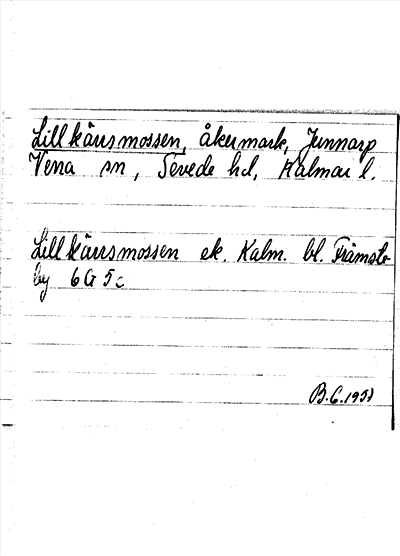 Lillkärrsmossen, åkermark, Junnarp
Vena sn, Sevede hd, Kalmar l.
Lillkärrsmossen ek. Kalm. bl. Främste-
by 6G 5c
B.G. 1958